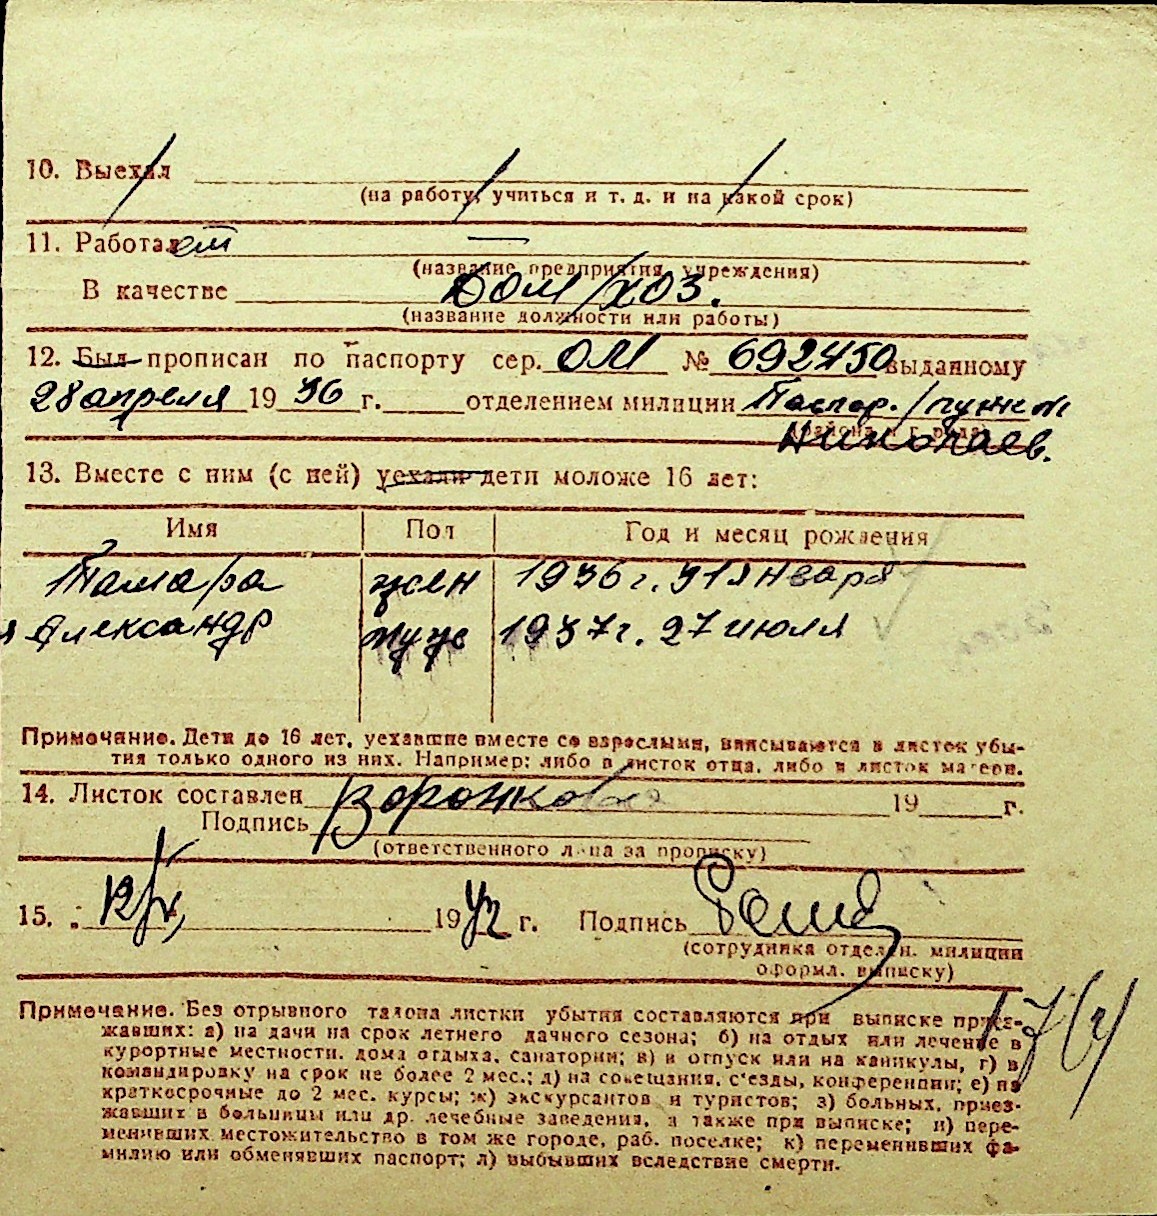 10. Выехал
(на работу, учиться и т. д. и на какой срок)
11. Работает —
(название предприятия, учреждения)
В качестве дом/хоз.
(название должности или работы)
12. Был прописан по паспорту сер. ОМ № 692450 выданному
28 апреля 1936 г. отделением милиции Паспор./пунктом
Николаев.
13. Вместе с ним (с ней) уехали дети моложе 16 лет:
Имя Пол Год и месяц рождения
Тамара жен 1936 г. 31 января
Александр муж 1937 г. 27 июля
Примечание. Дети до 16 лет, уехавшие вместе со взрослыми, вписываются в листок убы-
тия только одного из них. Например: либо в листок отца, либо в листок матери.
14. Листок составлен 19 г.
Подпись Воронкова
(ответственного лица за прописку)
15. 12/IX 1942 г. Подпись
(сотрудника отделен. милиции
оформл. выписку)
Примечание. Без отрывного талона листки убытия составляются при выписке приез-
жавших: а) на дачи на срок летнего дачного сезона; б) на отдых или лечение в
курортные местности, дома отдыха, санатории; в) в отпуск или на каникулы, г) в
командировку на срок не более 2 мес.; д) на совещания, с'езды, конференции; е) на
краткосрочные до 2 мес. курсы; ж) экскурсантов и туристов; з) больных, приез-
жавших в больницы или др. лечебные заведения, а также при выписке; и) пере-
менивших местожительство в том же городе, раб. поселке; к) переменивших фа-
милию или обменявших паспорт; л) выбывших вследствие смерти.